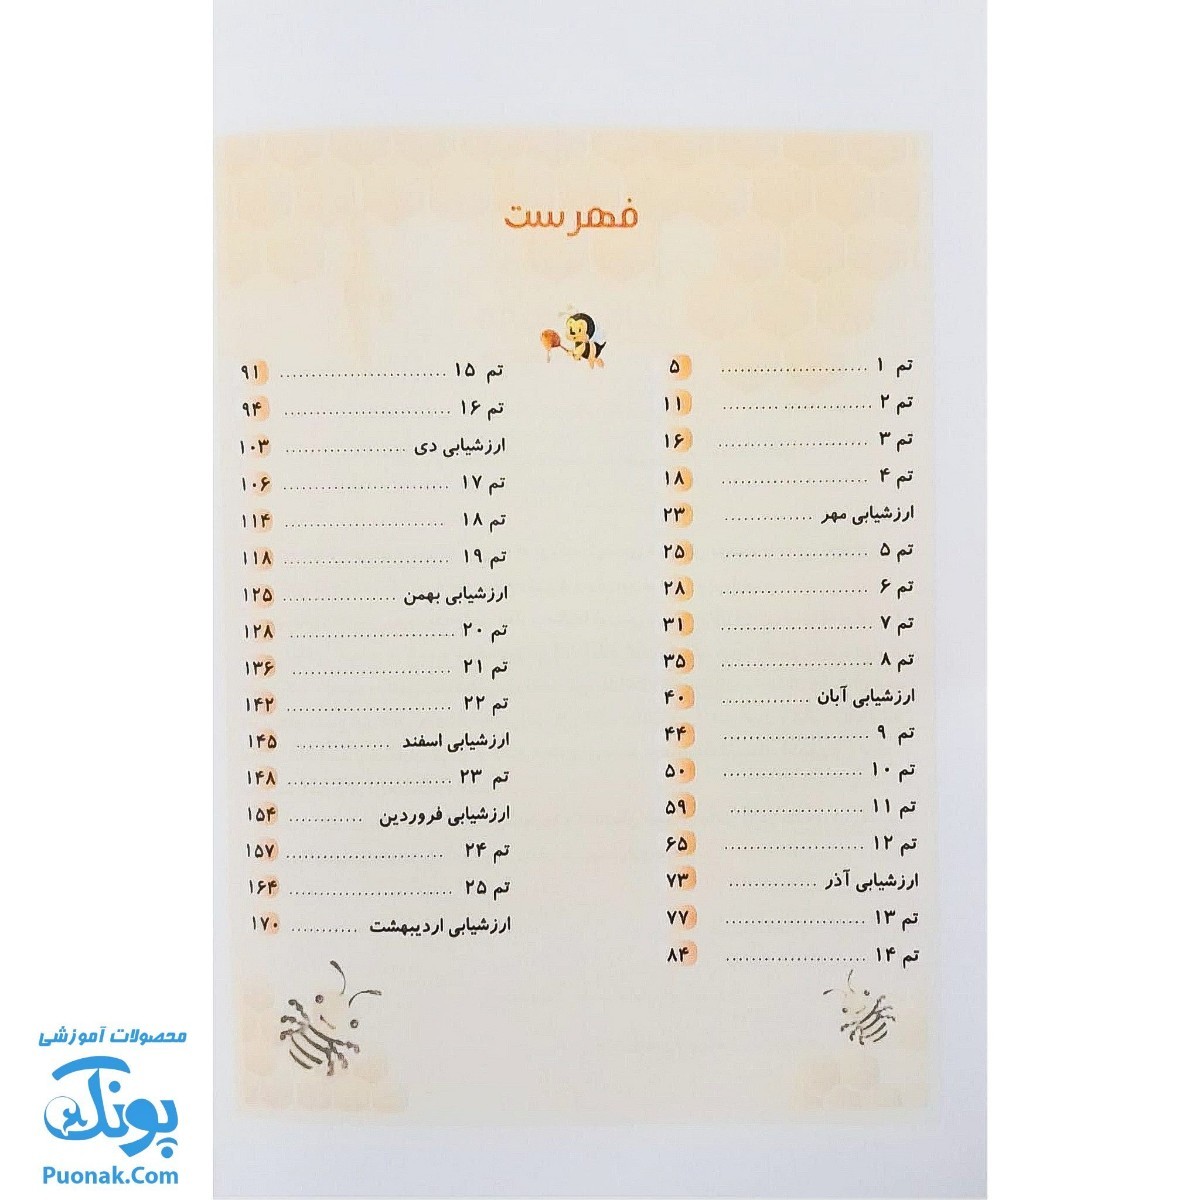 فهرست
تم ۱ ....................... ۵
تم ۲ ....................... ۱۱
تم ۳ ....................... ۱۶
تم ۴ ....................... ۱۸
ارزشیابی مهر .............. ۲۳
تم ۵ ....................... ۲۵
تم ۶ ....................... ۲۸
تم ۷ ....................... ۳۱
تم ۸ ....................... ۳۵
ارزشیابی آبان .............. ۴۰
تم ۹ ....................... ۴۴
تم ۱۰ ...................... ۵۰
تم ۱۱ ..................... ۵۹
تم ۱۲ ...................... ۶۵
ارزشیابی آذر .............. ۷۳
تم ۱۳ ...................... ۷۷
تم ۱۴ ...................... ۸۴
تم ۱۵ .......................... ۹۱
تم ۱۶ .......................... ۹۴
ارزشیابی دی ................... ۱۰۳
تم ۱۷ .......................... ۱۰۶
تم ۱۸ ......................... ۱۱۴
تم ۱۹ .......................... ۱۱۸
ارزشیابی بهمن .................. ۱۲۵
تم ۲۰ .......................... ۱۲۸
تم ۲۱ ......................... ۱۳۶
تم ۲۲ .......................... ۱۴۲
ارزشیابی اسفند ............... ۱۴۵
تم ۲۳ .......................... ۱۴۸
ارزشیابی فروردین ............ ۱۵۴
تم ۲۴ ......................... ۱۵۷
تم ۲۵ .......................... ۱۶۴
ارزشیابی اردیبهشت ........... ۱۷۰
محصولات آموزشی
پونک
Puonak.Com